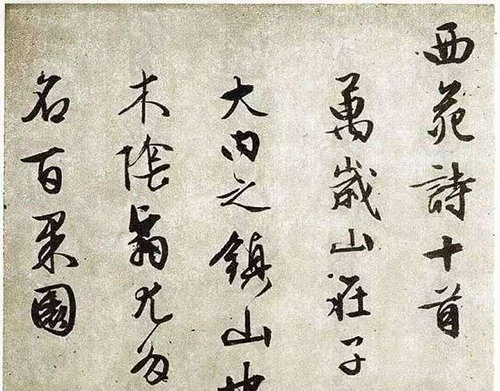 西苑詩十首
萬歲山在子
大内之鎮山
木陰翳尤多
名百果園